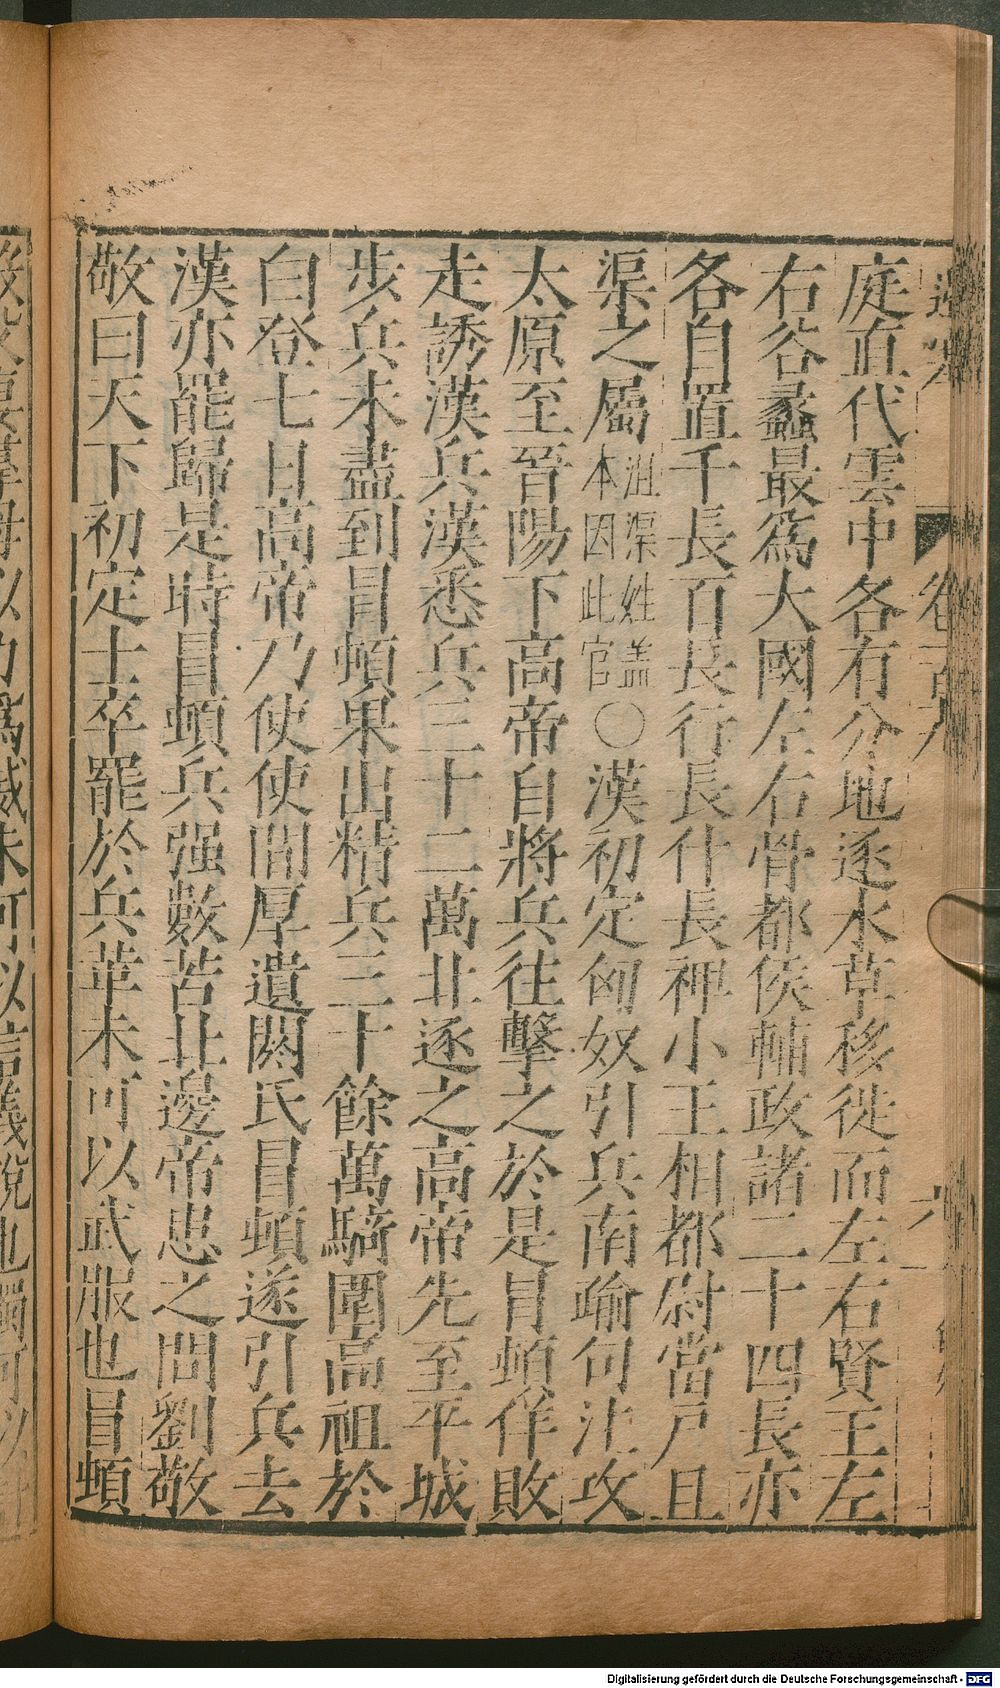 庭直代雲中各有分地逐水草移徙而左右賢王左
右谷蠡最爲大國左右骨都侯輔政諸二十四長亦
各自置千長百長行長什長裨小王相都尉當戶且
渠之屬沮渠姓蓋本因此官〇漢初定匈奴引兵南踰句注攻
太原至晉陽下高帝自將兵往擊之於是冒頓佯敗
走誘漢兵漢悉兵三十二萬北逐之高帝先至平城
步兵未盡到冒頓果出精兵三十餘萬騎圍高祖於
白登七日高帝乃使使間厚遺閼氏冒頓遂引兵去
漢亦罷歸是時冒頓兵强數苦北邊帝患之問劉敬
敬曰天下初定士卒罷於兵革未可以武服也冒頓
以力爲威未可以信義說也獨可以
Digitalisierung gefördert durch die Deutsche Forschungsgemeinschaft - DFG